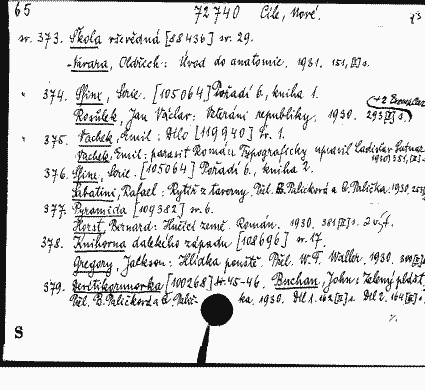 65 72740 Cíle, Nové.
sv. 373. Škola vševědná [88436] sv. 29.
-Távara, Oldřich: Úvod do anatomie. 1931. 151,[I]s.
" 374. Sfinx, Serie. [105064] Pořadí 6., kniha 1.
Rosůlek, Jan Václav: Veteráni republiky. 1930. 293[II]s.
(+2 Exemplar
" 375. Vachek, Emil: Dílo [119940] sv. 1.
Vachek, Emil: parasit Román Typograficky upravil Ladislav
376. Sfinx, Serie. [105064] Pořadí 6., kniha 2.
Sabatini, Rafael: Rytíř z taverny. Přel. B. Paličková a O. Palička. 1930.
377. Pyramida [109382] sv. 6.
Horst, Bernard: Hučící země. Román. 1930. 381[II]s.
378. Knihovna dalekého západu [108696] sv. 17.
Gregory, Jackson: Hlídka pouště. Přel. W. F. Waller. 1930.
379. [100268] sv. 45-46. Buchan, John: Zelený plášť.
Přel. B. Paličková a O. Palič ka. 1930. Díl 1. 162[II]s. Díl 2. 164[II]s.
S